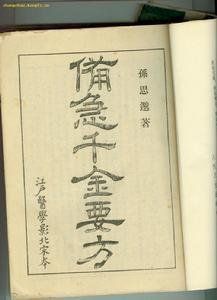 孫思邈著
備急千金要方
江戶醫學影北宋本